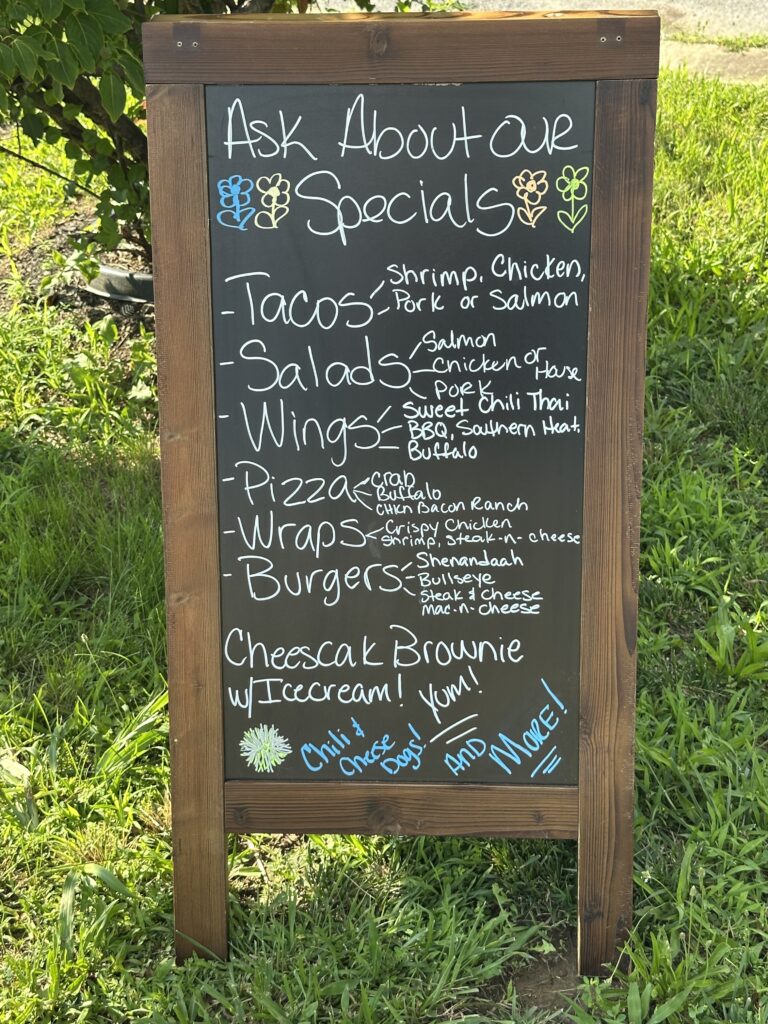 Ask About our
Specials
- Tacos Shrimp, Chicken,
Pork or Salmon
- Salads Salmon
Chicken or House
Pork
- Wings Sweet Chili Thai
BBQ, Southern Heat,
Buffalo
- Pizza Crab
Buffalo
CHKn Bacon Ranch
- Wraps Crispy Chicken
Shrimp, Steak-n-cheese
- Burgers Shenandoah
Bullseye
Steak & Cheese
Mac-n-cheese
Cheescak Brownie
w/Icecream! Yum!
Chili &
Cheese
Dogs!
AND MORE!